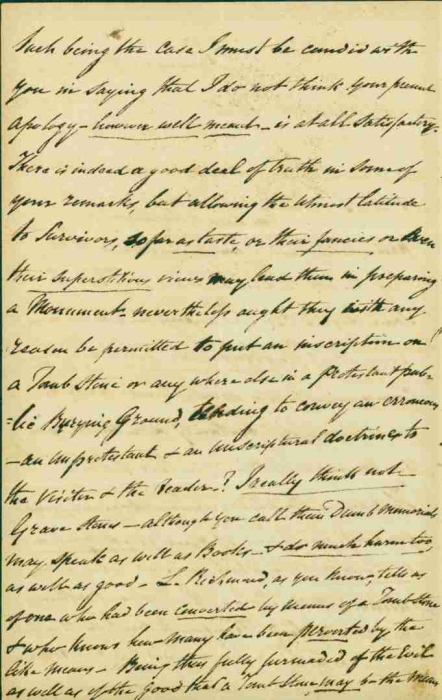 Such being the case I must be candid with
you in saying that I do not think your present
apology - however well meant - is at all satisfactory.
There is indeed a good deal of truth in some of
your remarks, but allowing the utmost latitude
to Survivors, so far as taste, or their fancies or even
their superstitious views may lead them in preparing
a Monument - nevertheless ought they with any
reason be permitted to put an inscription on
a Tomb Stone or any where else in a Protestant pub-
=lic Burying Ground, tending to convey an erroneous
- an unprotestant & an unscriptural doctrine to
the Visitor & the Reader -? I really think not
Grave Stones - although you call them Dumb Memorials
may speak as well as Books - & do much harm too,
as well as good - L. Richmond, as you know, tells us
of one who had been converted by means of a Tomb Stone
& who knows how many have been perverted by the
like means - Being thus fully persuaded of the Evil
as well as of the Good that a Tomb Stone may be the means